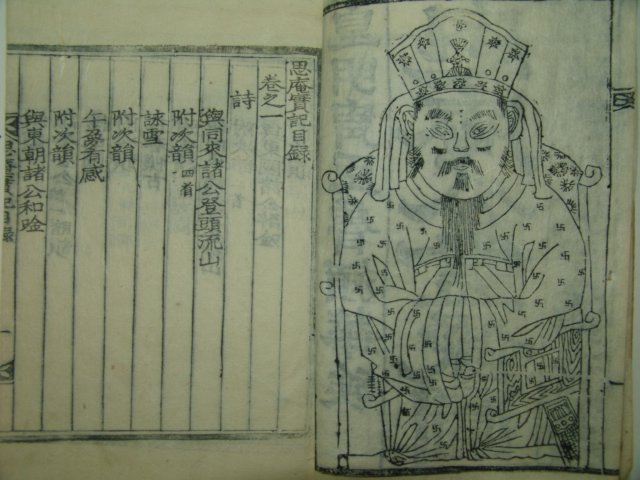 思庵實記目錄
卷之一
詩
與同來諸公登頭流山
附次韻 四首
詠雪
附次韻
午夢有感
附次韻
與東朝諸公和唫